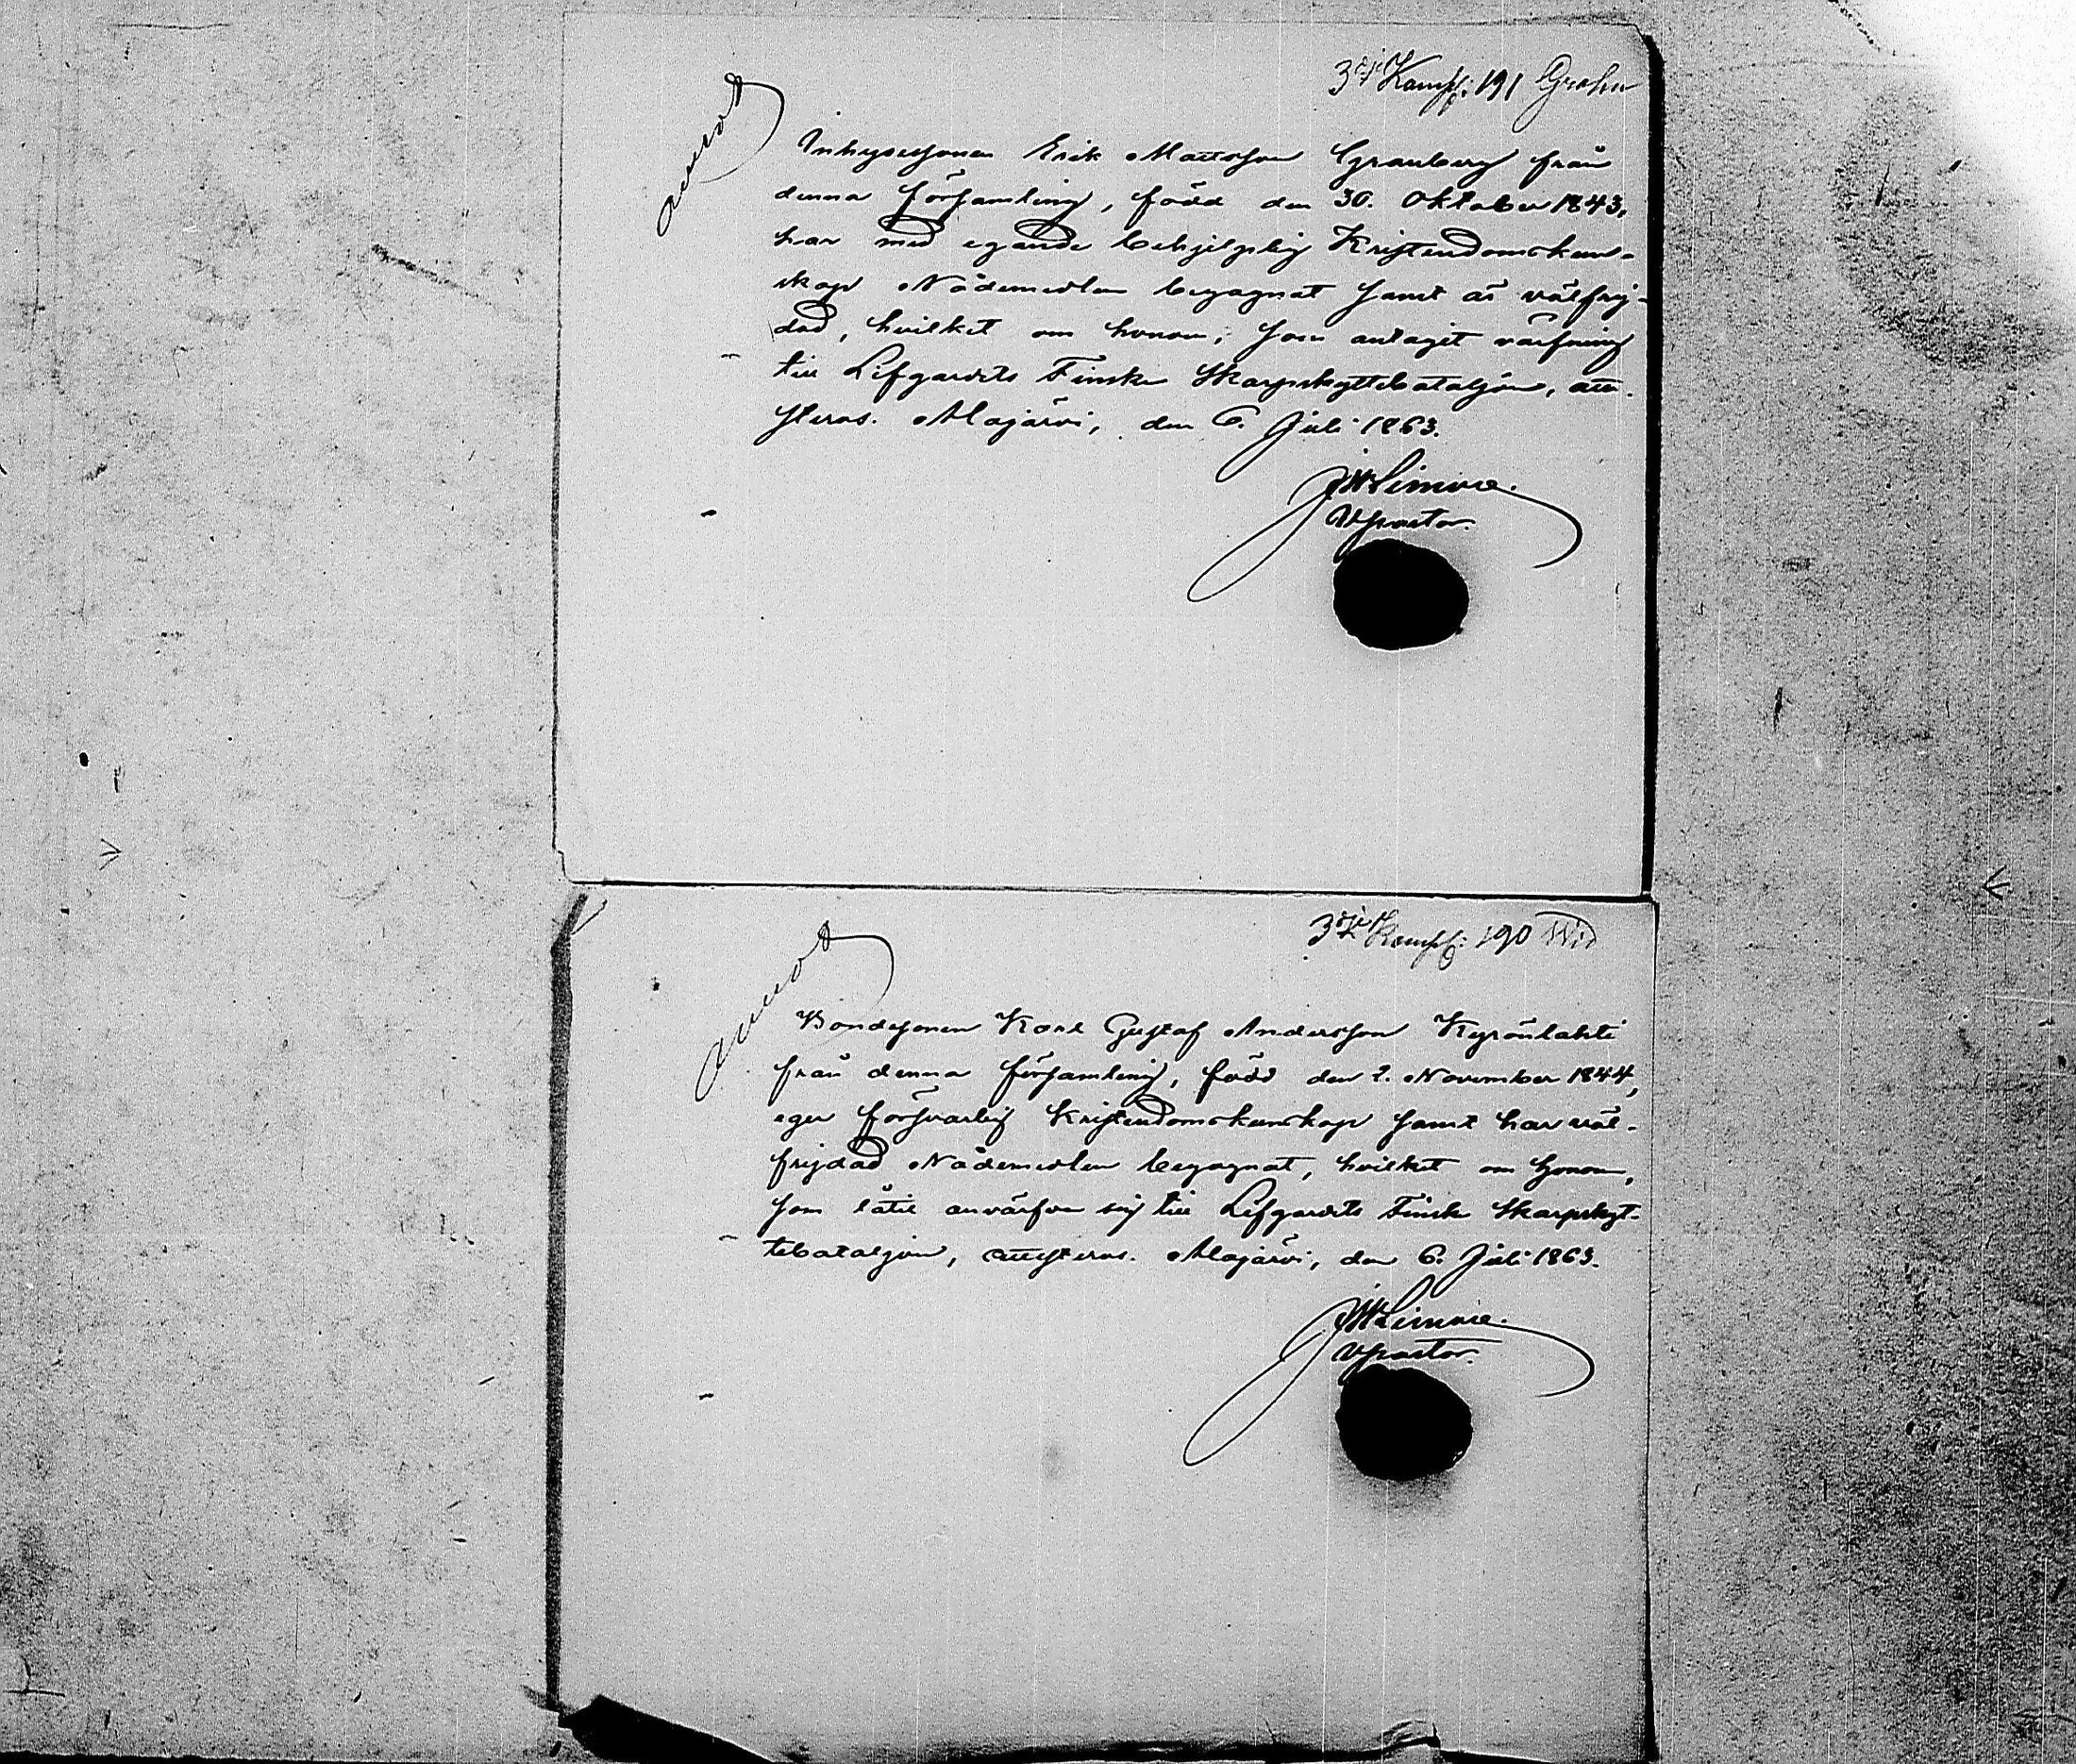 3dje Komp: 191 Grohn
Inhysessonen Erik Mattsson Granberg från
denna församling, född den 30. Oktober 1843,
har med egande behjelplig Kristendomskun-
skap Nådemedlen begagnat samt är välfrej-
dad, hvilket om honom, som antagit värfning
till Lifgardets Finska Skarpskyttebataljon, atte-
steras. Alajärvi, den 6. Juli 1863.
Vpastor.
3dje Komp: 190 Wid
Bondesonen Karl Gustaf Andersson Kyrönlahti
från denna församling, född den 2. November 1844,
eger försvarlig Kristendomskunskap samt har väl-
frejdad Nådemedlen begagnat, hvilket om honom,
som låtit anvärfva sig till Lifgardets Finska Skarpskyt-
tebataljon, attesteras. Alajärvi, den 6. Juli 1863.
Vpastor.